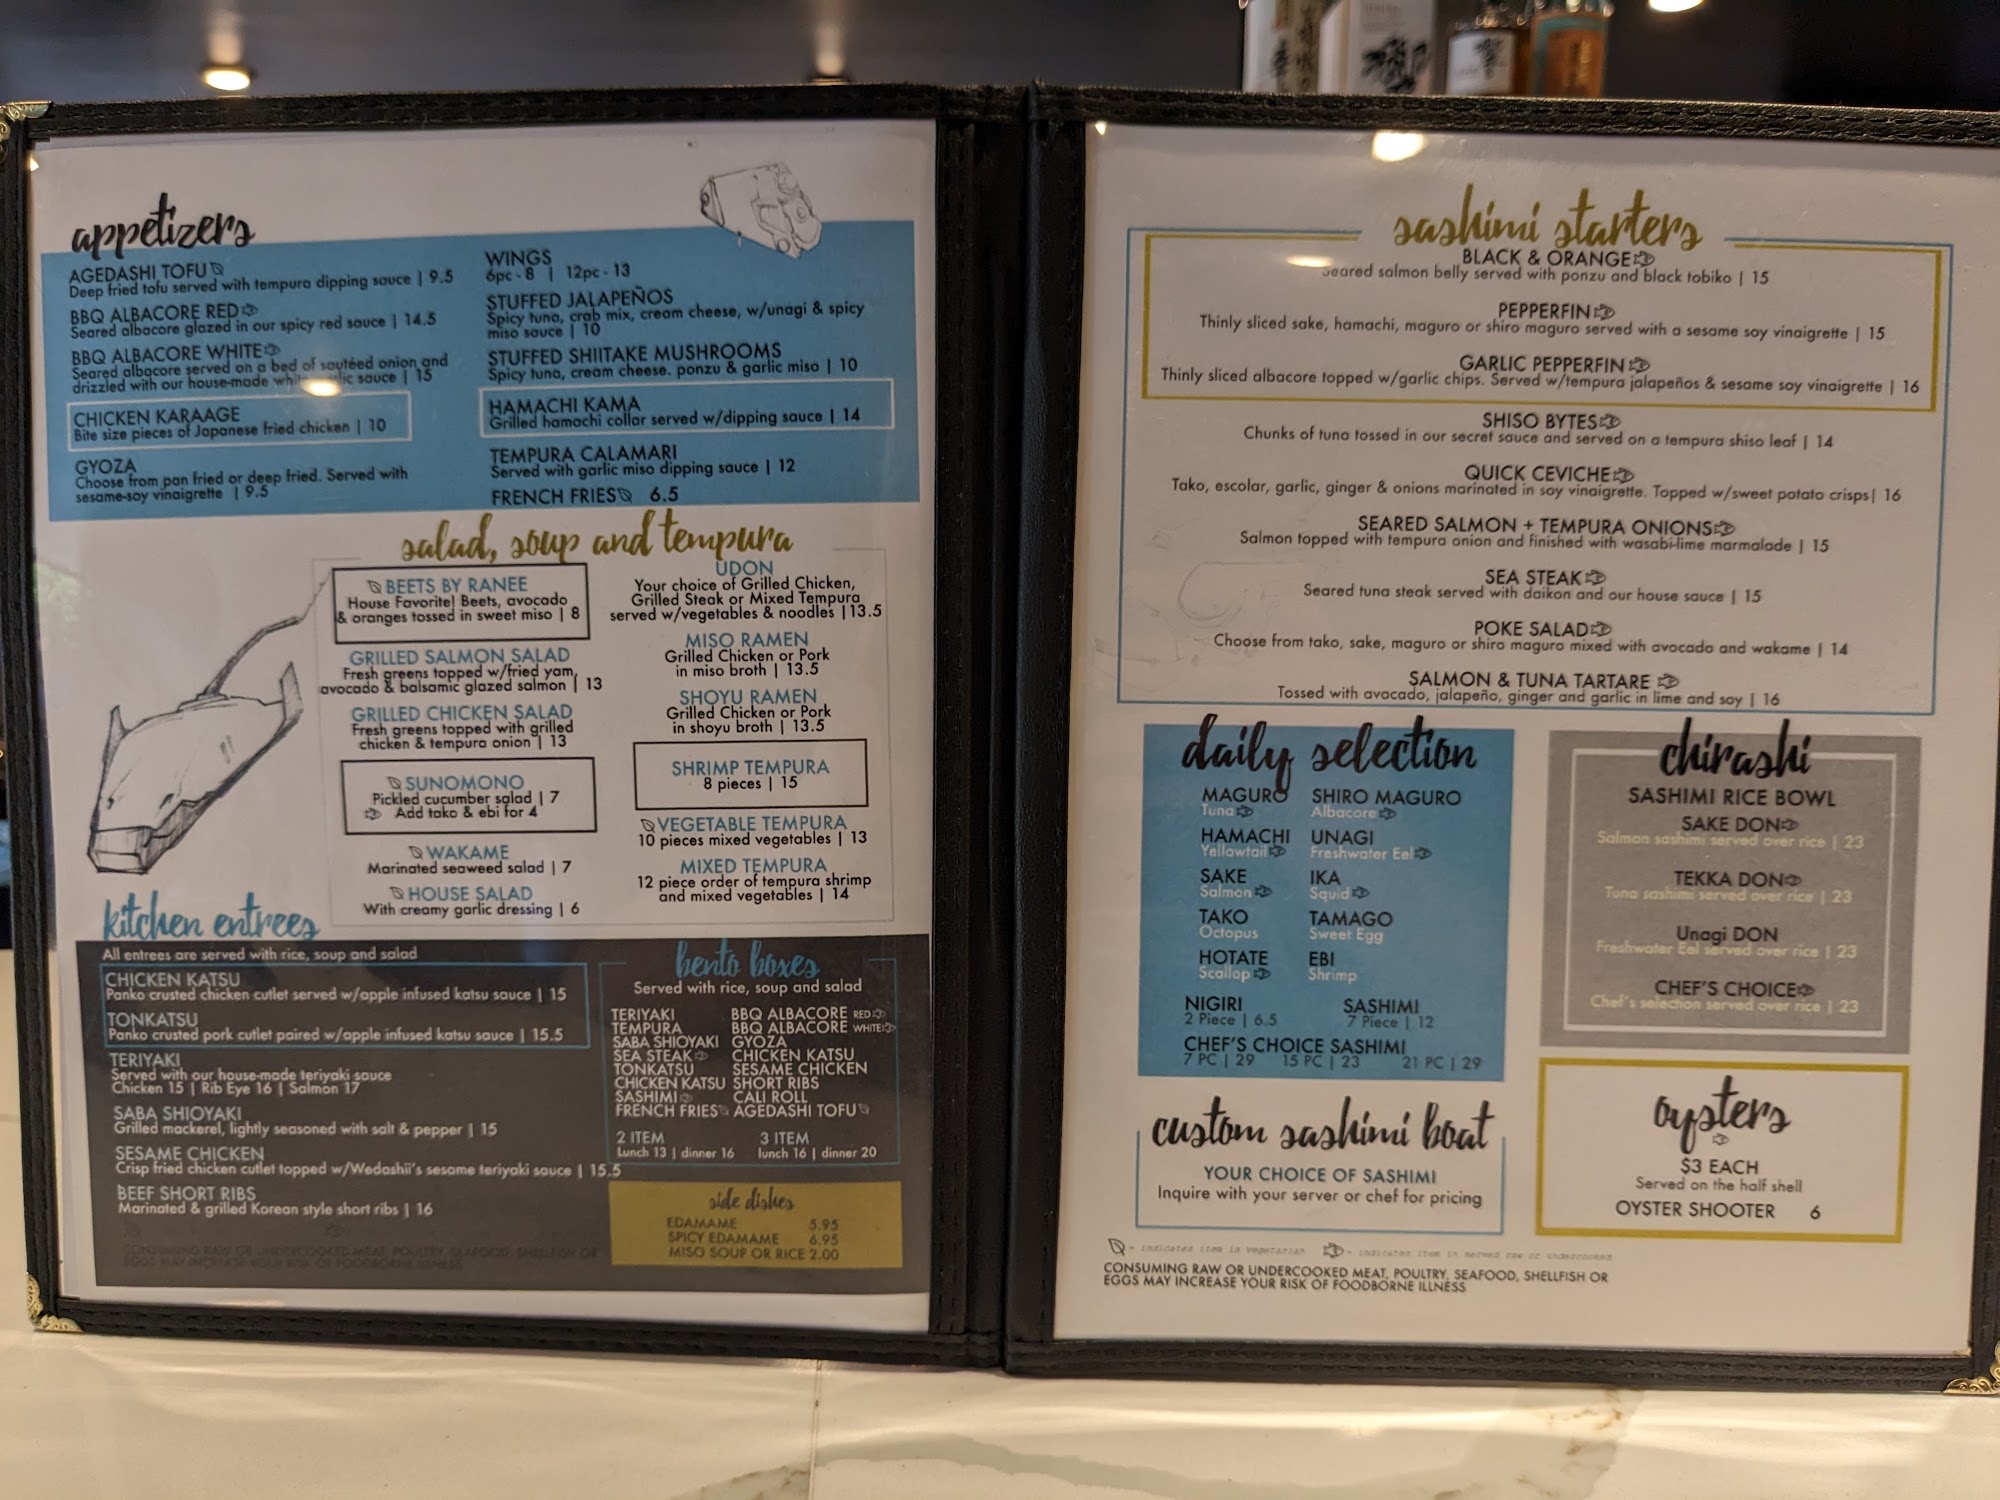 appetizers
AGEDASHI TOFU
Deep fried tofu served with tempura dipping sauce | 9.5
BBQ ALBACORE RED
Seared albacore glazed in our spicy red sauce | 14.5
BBQ ALBACORE WHITE
Seared albacore served on a bed of sautéed onion and
drizzled with our house-made white garlic sauce | 15
CHICKEN KARAAGE
Bite size pieces of Japanese fried chicken | 10
GYOZA
Choose from pan fried or deep fried. Served with
sesame-soy vinaigrette | 9.5
WINGS
6pc - 8 | 12pc - 13
STUFFED JALAPEÑOS
Spicy tuna, crab mix, cream cheese, w/unagi & spicy
miso sauce | 10
STUFFED SHIITAKE MUSHROOMS
Spicy tuna, cream cheese. ponzu & garlic miso | 10
HAMACHI KAMA
Grilled hamachi collar served w/dipping sauce | 14
TEMPURA CALAMARI
Served with garlic miso dipping sauce | 12
FRENCH FRIES 6.5
salad, soup and tempura
BEETS BY RANEE
House Favorite! Beets, avocado
& oranges tossed in sweet miso | 8
GRILLED SALMON SALAD
Fresh greens topped w/fried yam,
avocado & balsamic glazed salmon | 13
GRILLED CHICKEN SALAD
Fresh greens topped with grilled
chicken & tempura onion | 13
SUNOMONO
Pickled cucumber salad | 7
Add tako & ebi for 4
WAKAME
Marinated seaweed salad | 7
HOUSE SALAD
With creamy garlic dressing | 6
UDON
Your choice of Grilled Chicken,
Grilled Steak or Mixed Tempura
served w/vegetables & noodles |13.5
MISO RAMEN
Grilled Chicken or Pork
in miso broth | 13.5
SHOYU RAMEN
Grilled Chicken or Pork
in shoyu broth | 13.5
SHRIMP TEMPURA
8 pieces | 15
VEGETABLE TEMPURA
10 pieces mixed vegetables | 13
MIXED TEMPURA
12 piece order of tempura shrimp
and mixed vegetables | 14
kitchen entrees
All entrees are served with rice, soup and salad
CHICKEN KATSU
Panko crusted chicken cutlet served w/apple infused katsu sauce | 15
TONKATSU
Panko crusted pork cutlet paired w/apple infused katsu sauce | 15.5
TERIYAKI
Served with our house-made teriyaki sauce
Chicken 15 | Rib Eye 16 | Salmon 17
SABA SHIOYAKI
Grilled mackerel, lightly seasoned with salt & pepper | 15
SESAME CHICKEN
Crisp fried chicken cutlet topped w/Wedashii's sesame teriyaki sauce | 15.5
BEEF SHORT RIBS
Marinated & grilled Korean style short ribs | 16
CONSUMING RAW OR UNDERCOOKED MEAT, POULTRY, SEAFOOD, SHELLFISH OR
EGGS MAY INCREASE YOUR RISK OF FOODBORNE ILLNESS
bento boxes
Served with rice, soup and salad
TERIYAKI BBQ ALBACORE RED
TEMPURA BBQ ALBACORE WHITE
SABA SHIOYAKI GYOZA
SEA STEAK CHICKEN KATSU
TONKATSU SESAME CHICKEN
CHICKEN KATSU SHORT RIBS
SASHIMI CALI ROLL
FRENCH FRIES AGEDASHI TOFU
2 ITEM 3 ITEM
Lunch 13 | dinner 16 lunch 16 | dinner 20
side dishes
EDAMAME 5.95
SPICY EDAMAME 6.95
MISO SOUP OR RICE 2.00
sashimi starters
BLACK & ORANGE
Seared salmon belly served with ponzu and black tobiko | 15
PEPPERFIN
Thinly sliced sake, hamachi, maguro or shiro maguro served with a sesame soy vinaigrette | 15
GARLIC PEPPERFIN
Thinly sliced albacore topped w/garlic chips. Served w/tempura jalapeños & sesame soy vinaigrette | 16
SHISO BYTES
Chunks of tuna tossed in our secret sauce and served on a tempura shiso leaf | 14
QUICK CEVICHE
Tako, escolar, garlic, ginger & onions marinated in soy vinaigrette. Topped w/sweet potato crisps| 16
SEARED SALMON + TEMPURA ONIONS
Salmon topped with tempura onion and finished with wasabi-lime marmalade | 15
SEA STEAK
Seared tuna steak served with daikon and our house sauce | 15
POKE SALAD
Choose from tako, sake, maguro or shiro maguro mixed with avocado and wakame | 14
SALMON & TUNA TARTARE
Tossed with avocado, jalapeño, ginger and garlic in lime and soy | 16
daily selection
MAGURO SHIRO MAGURO
Tuna Albacore
HAMACHI UNAGI
Yellowtail Freshwater Eel
SAKE IKA
Salmon Squid
TAKO TAMAGO
Octopus Sweet Egg
HOTATE EBI
Scallop Shrimp
NIGIRI SASHIMI
2 Piece | 6.5 7 Piece | 12
CHEF'S CHOICE SASHIMI
7 PC | 29 15 PC | 23 21 PC | 29
chirashi
SASHIMI RICE BOWL
SAKE DON
Salmon sashimi served over rice | 23
TEKKA DON
Tuna sashimi served over rice | 23
Unagi DON
Freshwater Eel served over rice | 23
CHEF'S CHOICE
Chef's selection served over rice | 23
custom sashimi boat
YOUR CHOICE OF SASHIMI
Inquire with your server or chef for pricing
oysters
$3 EACH
Served on the half shell
OYSTER SHOOTER 6
- indicates item is vegetarian - indicates item is served raw or undercooked
CONSUMING RAW OR UNDERCOOKED MEAT, POULTRY, SEAFOOD, SHELLFISH OR
EGGS MAY INCREASE YOUR RISK OF FOODBORNE ILLNESS